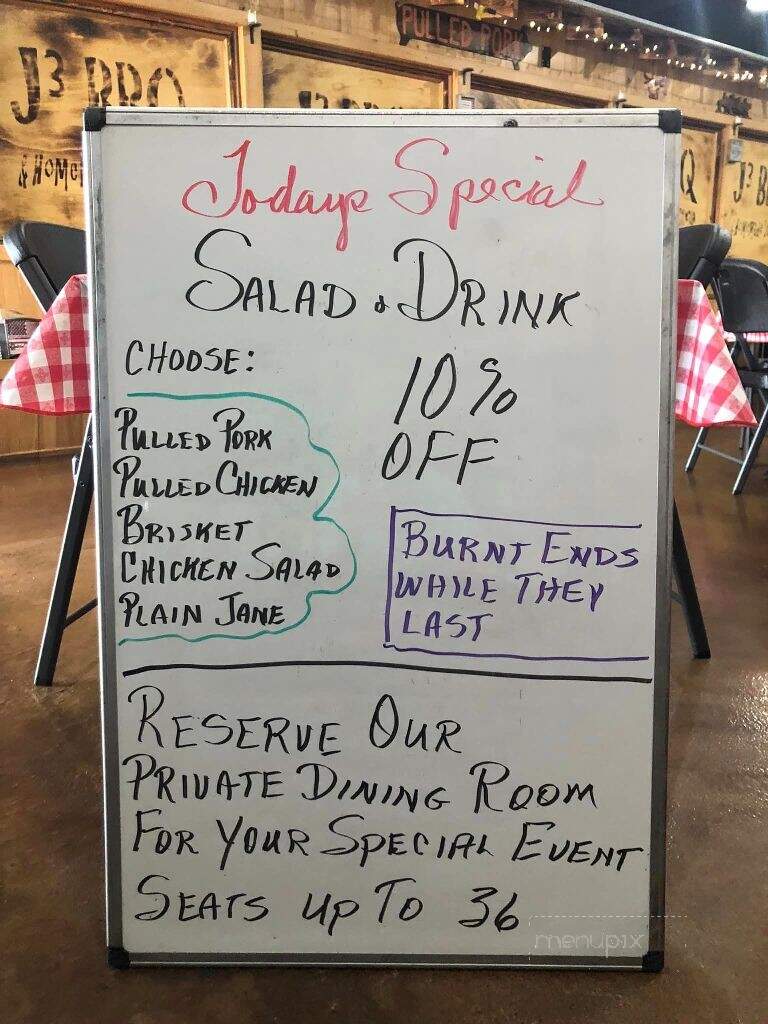 PULLED PORK
J³ BBQ
Todays Special
SALAD & DRINK
CHOOSE:
10%
OFF
PULLED PORK
PULLED CHICKEN
BRISKET
CHICKEN SALAD
PLAIN JANE
BURNT ENDS
WHILE THEY
LAST
RESERVE OUR
PRIVATE DINING ROOM
FOR YOUR SPECIAL EVENT
SEATS UP TO 36
menupix